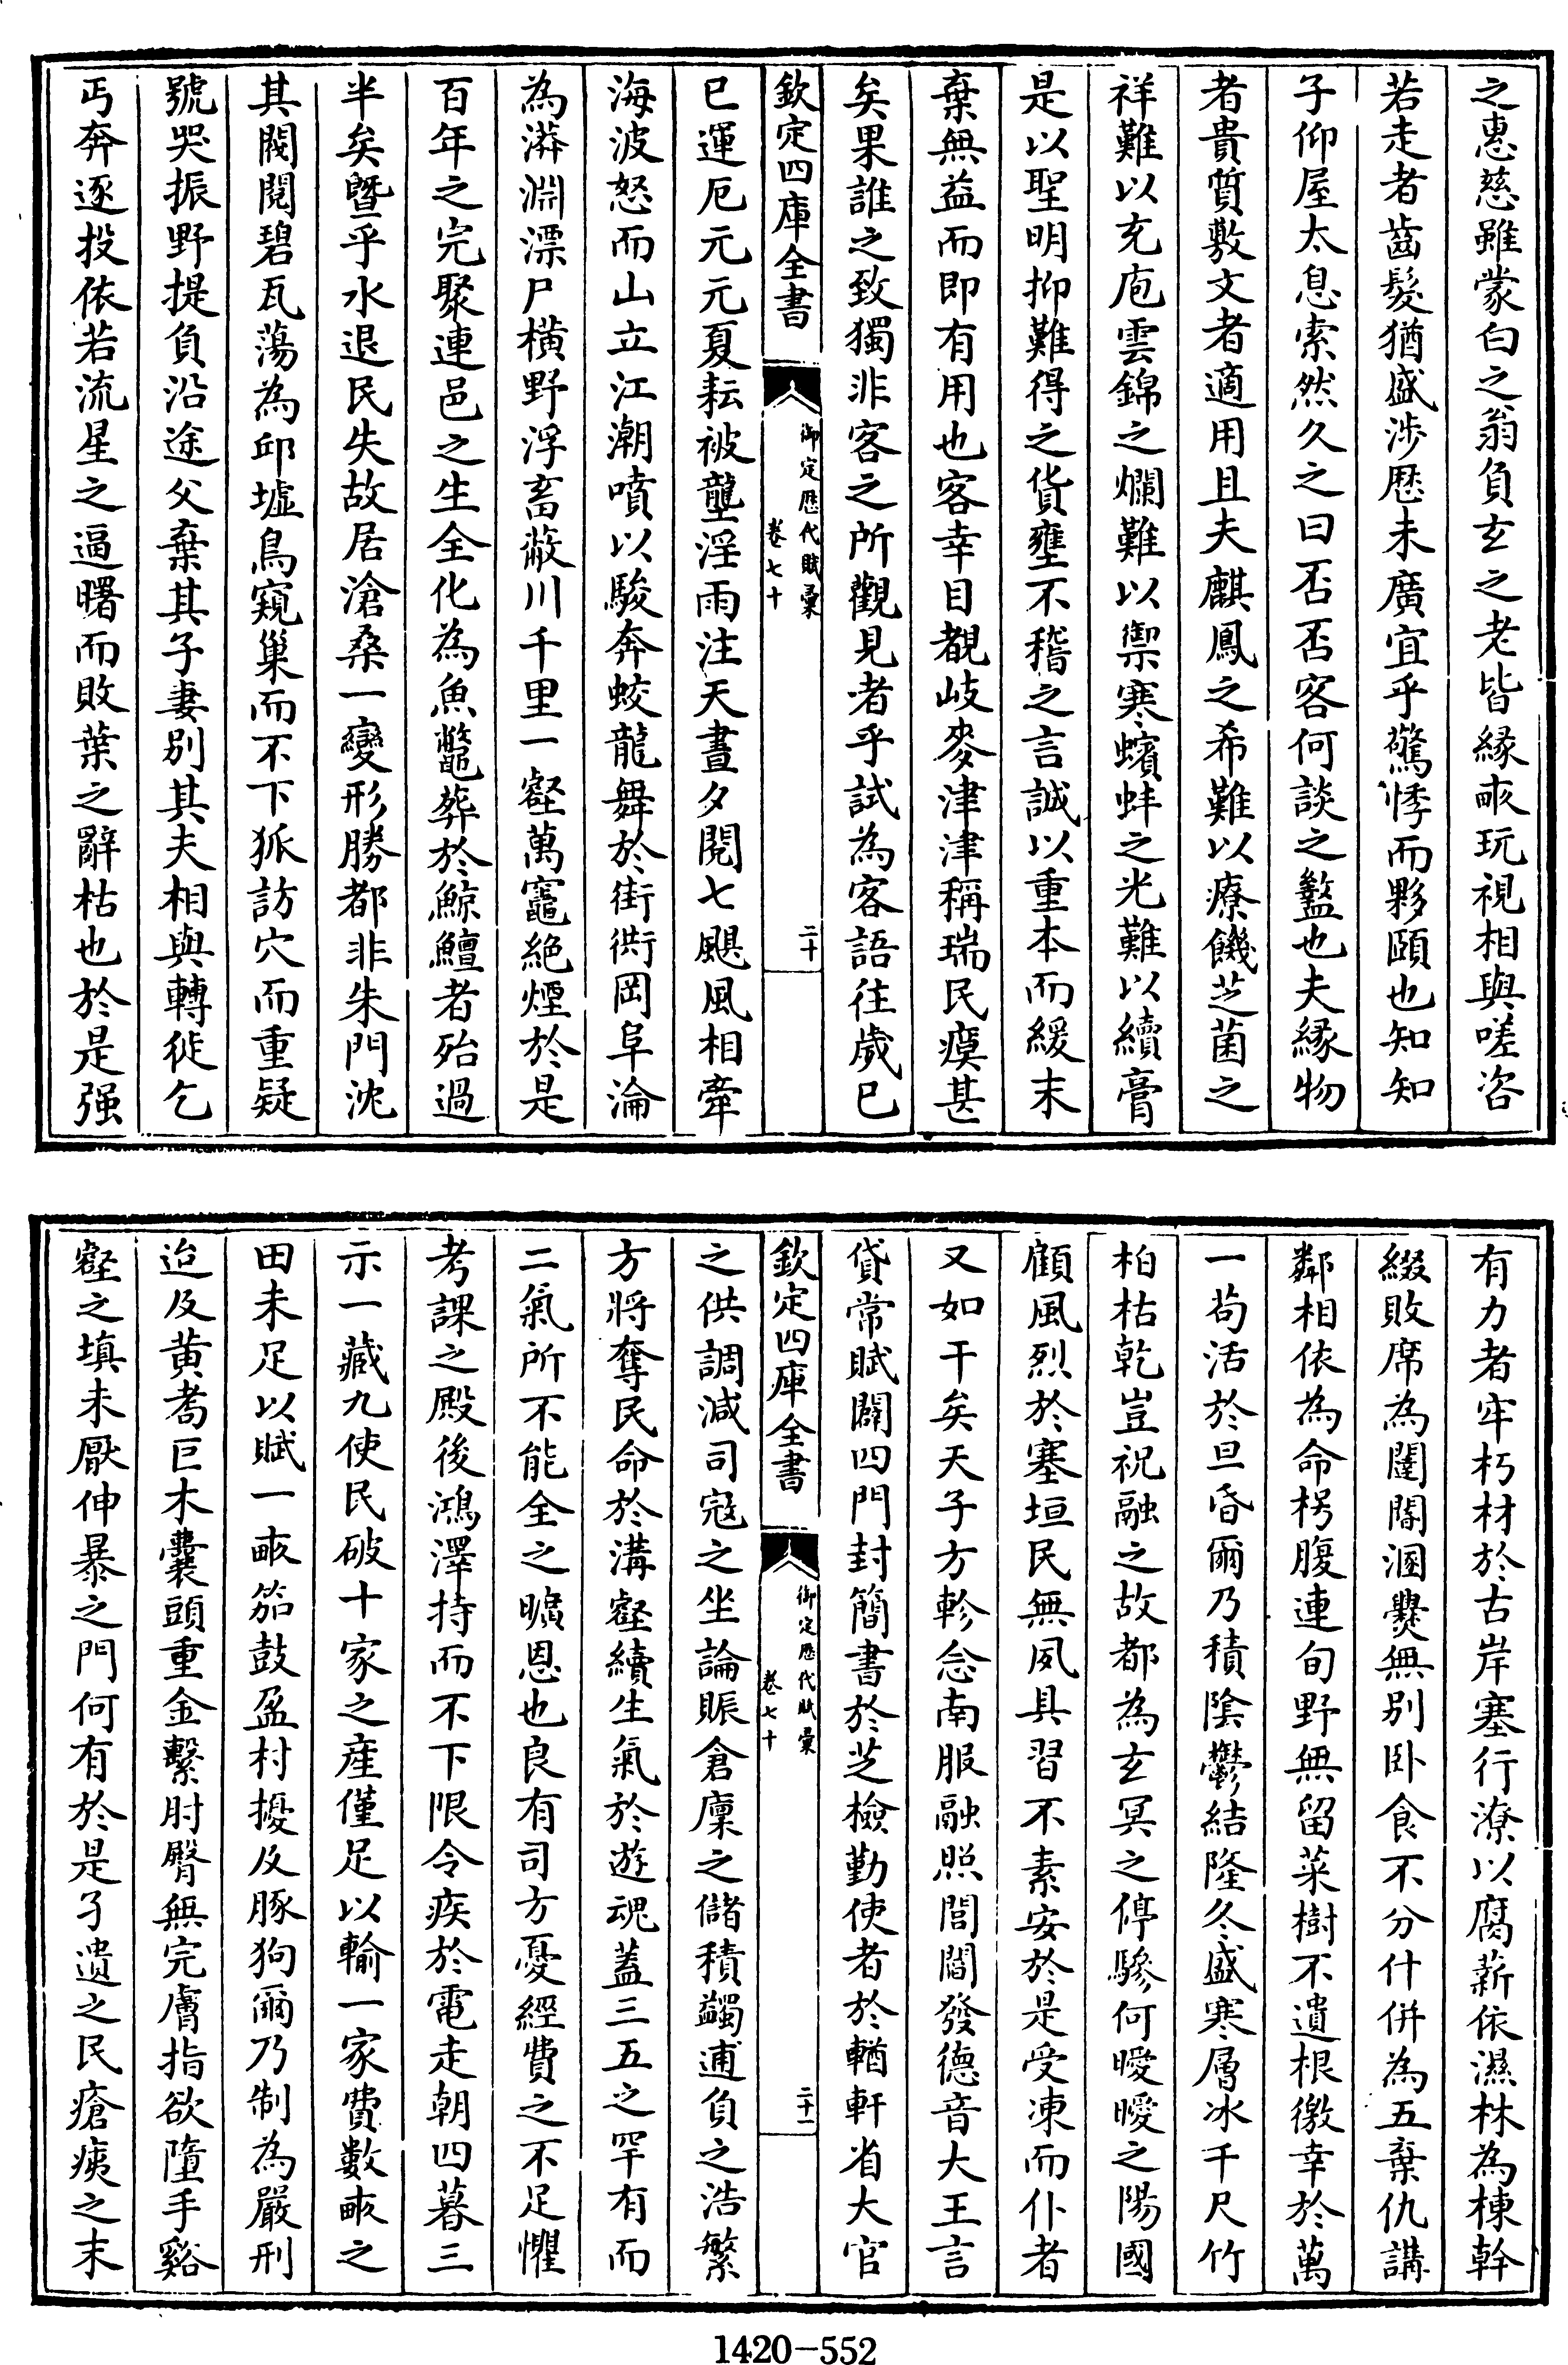 之惠慈雖蒙白之翁負玄之老皆緣畝玩視相與嗟咨
若走者齒髮猶盛涉歷未廣宜乎驚悸而夥頤也知知
子仰屋太息索然久之曰否否客何談之盭也夫緣物
者貴質敷文者適用且夫麒鳳之希難以療饑芝菌之
祥難以充庖雲錦之爛難以禦寒蠙蚌之光難以續膏
是以聖明抑難得之貨壅不稽之言誠以重本而緩末
棄無益而即有用也客幸目覩岐麥津津稱瑞民瘼甚
矣果誰之致獨非客之所觀見者乎試為客語往歲巳
欽定四庫全書
御定歷代賦彚
卷七十
二十
已運厄元元夏耘被壟淫雨注天晝夕閱七颶風相牽
海波怒而山立江潮噴以駿奔蛟龍舞於街衖岡阜淪
為漭淵漂尸橫野浮畜蔽川千里一壑萬竈絕煙於是
百年之完聚連邑之生全化為魚鼈葬於鯨鱣者殆過
半矣曁乎水退民失故居滄桑一變形勝都非朱門沈
其閥閱碧瓦蕩為邱墟鳥窺巢而不下狐訪穴而重疑
號哭振野提負沿途父棄其子妻別其夫相與轉徙乞
丐奔逐投依若流星之逼曙而敗葉之辭枯也於是强
有力者牢朽材於古岸塞行潦以腐薪依濕林為棟幹
綴敗席為闥闇溷爨無別卧食不分什併為五棄仇講
鄰相依為命枵腹連旬野無留菜樹不遺根徼幸於萬
一苟活於旦昏爾乃積陰鬱結隆冬盛寒層冰千尺竹
柏枯乾豈祝融之故都為玄冥之停驂何曖曖之陽國
顧風烈於塞垣民無夙具習不素安於是受凍而仆者
又如干矣天子方軫念南服融照閭閻發德音大王言
貸常賦闢四門封簡書於芝檢勤使者於輶軒省大官
欽定四庫全書
御定歷代賦彚
卷七十
二十一
之供調減司寇之坐論賑倉廩之儲積蠲逋負之浩繁
方將奪民命於溝壑續生氣於遊魂蓋三五之罕有而
二氣所不能全之曠恩也良有司方憂經費之不足懼
考課之殿後鴻澤持而不下限令疾於電走朝四暮三
示一藏九使民破十家之產僅足以輸一家費數畝之
田未足以賦一畝笳鼓盈村擾及豚狗爾乃制為嚴刑
迨及黃耉巨木囊頭重金繫肘臀無完膚指欲墮手谿
壑之填未厭伸暴之門何有於是孑遺之民瘡痍之末
1420-552